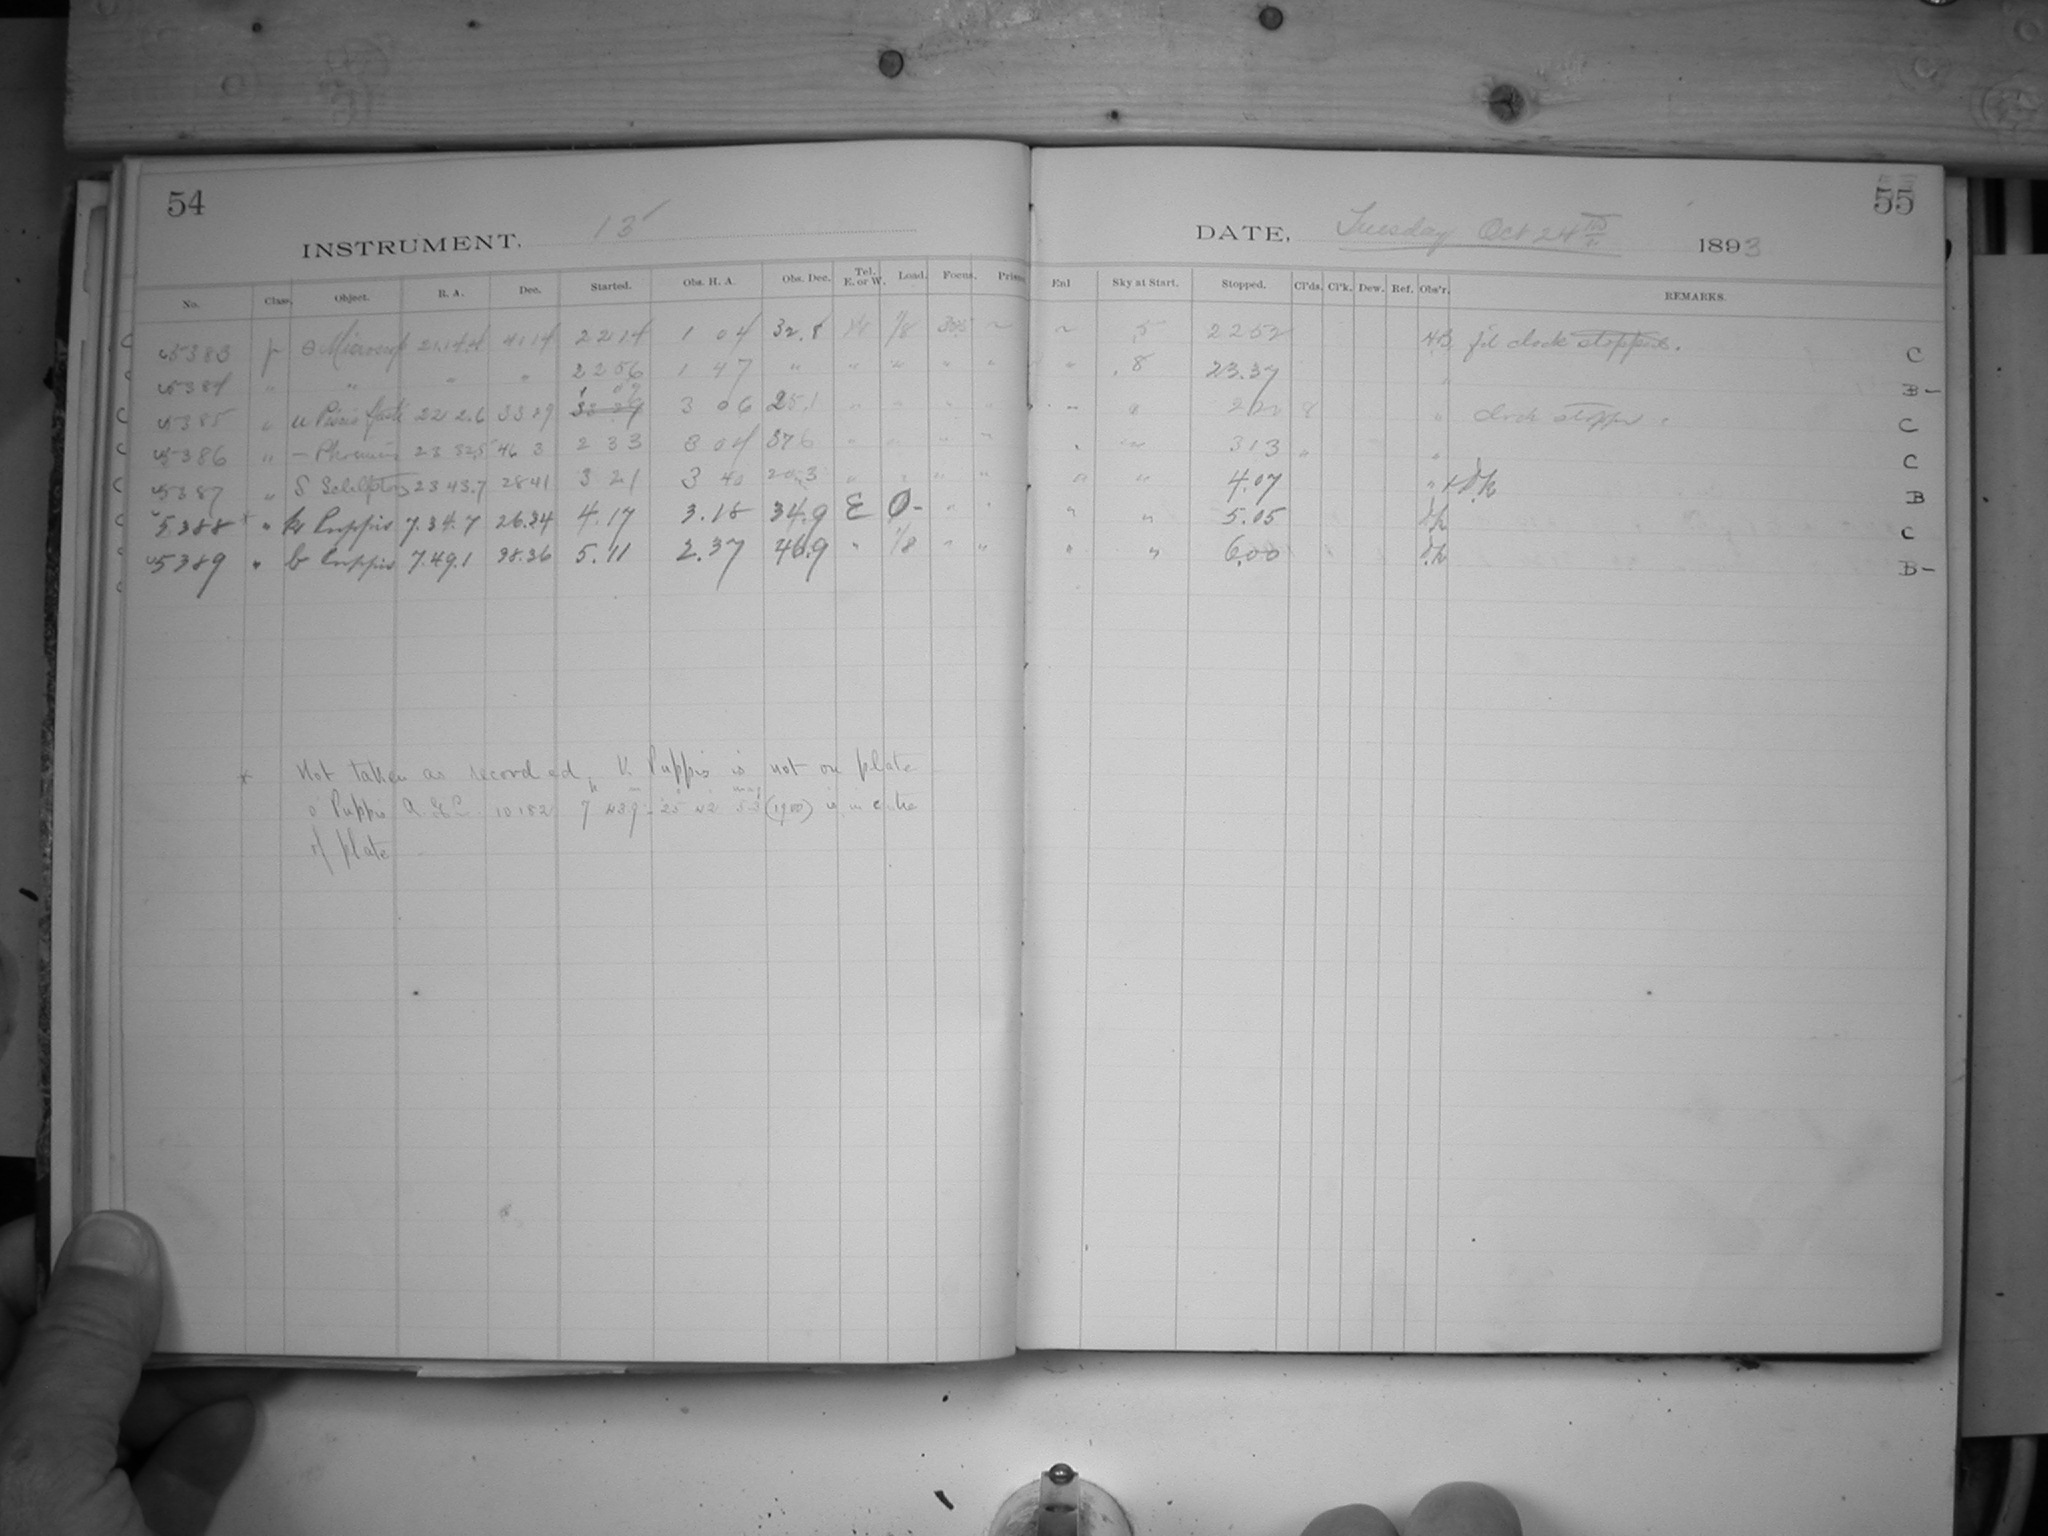 54
INSTRUMENT, 13"
No. Class. Object. R. A. Dec. Started. Obs. H. A. Obs. Dec. Tel. E. or W. Load. Focus. Prism
5383 p θ Microscop 21.14.4 41 14 22 14 1 04 32.8 1/8
5384 " " " " 22 56 1 47 " " " " "
5385 " 22 2.6 33 29 1 07 3 06 25.1
5386 " – Phoenix 23 32.5 46 3 2 33 3 04 37.6 " " "
5387 " δ Sculptors 23 43.7 28 41 3 21 3 40 20.3 " " " "
5388 * " k Puppis 7.34.7 26.34 4.17 3.18 34.9 E 0- " "
5389 " b Puppis 7.49.1 38.36 5.11 2.37 46.9 " 1/8 " "
* Not taken as recorded, k Puppis is not on plate
o Puppis A.G.C. 10182 7h 43.9m - 25° 42' mag 5.3 (1900) is in centre
of plate
55
DATE, Tuesday Oct 24 1893
Enl Sky at Start. Stopped. Cl'ds. Cl'k. Dew. Ref. Obs'r. REMARKS.
~ 5 22 52 clock stopped. C
" 8 23.37 " B–
" " 8 " clock stopped C
" " 3 13 " " C
" " 4.07 " B
" " 5.05 C
" " 6.00 B–